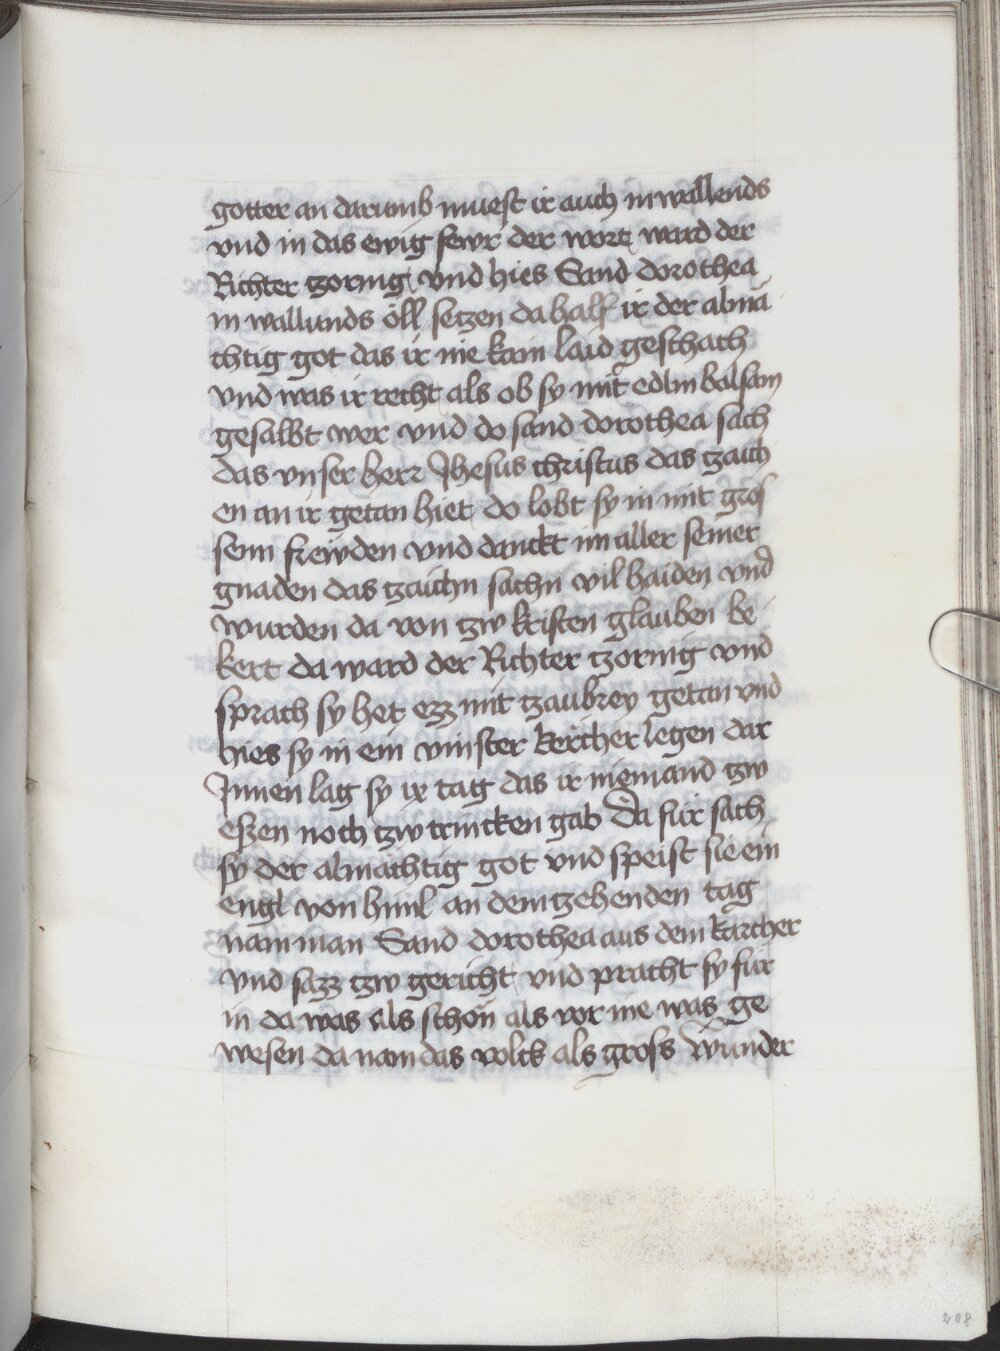 gotter an darumb muest ir auch in wallends
vnd in das ewig fewr der wort ward der
Richter zornig vnd hies Sand dorothea
in wallunds öll seczen da half ir der almä
chtig got das ir nie kain laid geschach
vnd was ir recht als ob sy mit edlm balsam
gesalbt wer vnd do sand dorothea sach
das vnser herr Jhesus christus das zaich
en an ir getan hiet do lobt sy in mit gros
senn frewden vnd danckt im aller seiner
gnaden das tzaichn sachn vil haiden vnd
wurden da von tzw kristen glauben be
kert da ward der Richter tzornig vnd
sprach sy het ezz mit tzaubrey getan vnd
hies sy in ein vinster kercher legen dar
Jnnen lag sy ix tag das ir niemand tzw
essen noch tzw trincken gab Da für sach
sy der almächtig got vnd speist sie ein
engl von himl an dem tzehenden tag
nam man Sand dorothea aus dem karcher
vnd sazz tzw gericht vnd pracht sy für
in da was als schön als vor nie was ge
wesen da nam das volck als gross wunder
208